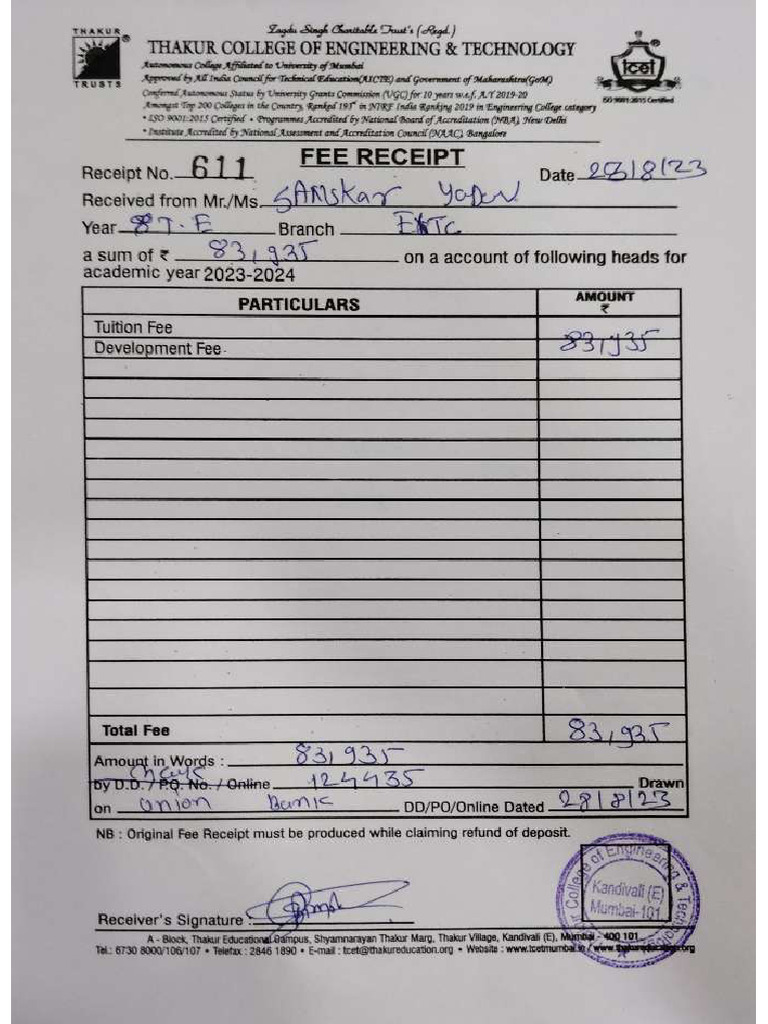 THAKUR
TRUSTS
Zagdu Singh Charitable Trust's (Regd.)
THAKUR COLLEGE OF ENGINEERING & TECHNOLOGY
Autonomous College Affiliated to University of Mumbai
Approved by All India Council for Technical Education(AICTE) and Government of Maharashtra(GoM)
Conferred Autonomous Status by University Grants Commission (UGC) for 10 years w.e.f. A.Y 2019-20
Amongst Top 200 Colleges in the Country, Ranked 193rd in NIRF India Ranking 2019 in Engineering College category
• ISO 9001:2015 Certified • Programmes Accredited by National Board of Accreditation (NBA), New Delhi
• Institute Accredited by National Assessment and Accreditation Council (NAAC), Bangalore
tcet
ISO 9001:2015 Certified
FEE RECEIPT
Receipt No. 611 Date 28/8/23
Received from Mr./Ms. SAMSkar Yadav
Year B.E Branch E&TC
a sum of ₹ 83,935 on a account of following heads for
academic year 2023-2024
PARTICULARS AMOUNT ₹
Tuition Fee
Development Fee 83,935
Total Fee 83,935
Amount in Words : 83,935
by D.D. / P.O. No. / Online 124435 Drawn
on Union Bank DD/PO/Online Dated 28/8/23
NB : Original Fee Receipt must be produced while claiming refund of deposit.
Receiver's Signature :
College of Engineering & Techno
Kandivali (E)
Mumbai-101
A - Block, Thakur Educational Campus, Shyamnarayan Thakur Marg, Thakur Village, Kandivali (E), Mumbai - 400 101
Tel.: 6730 8000/106/107 • Telefax : 2846 1890 • E-mail : tcet@thakureducation.org • Website : www.tcetmumbai.in / www.thakureducation.org